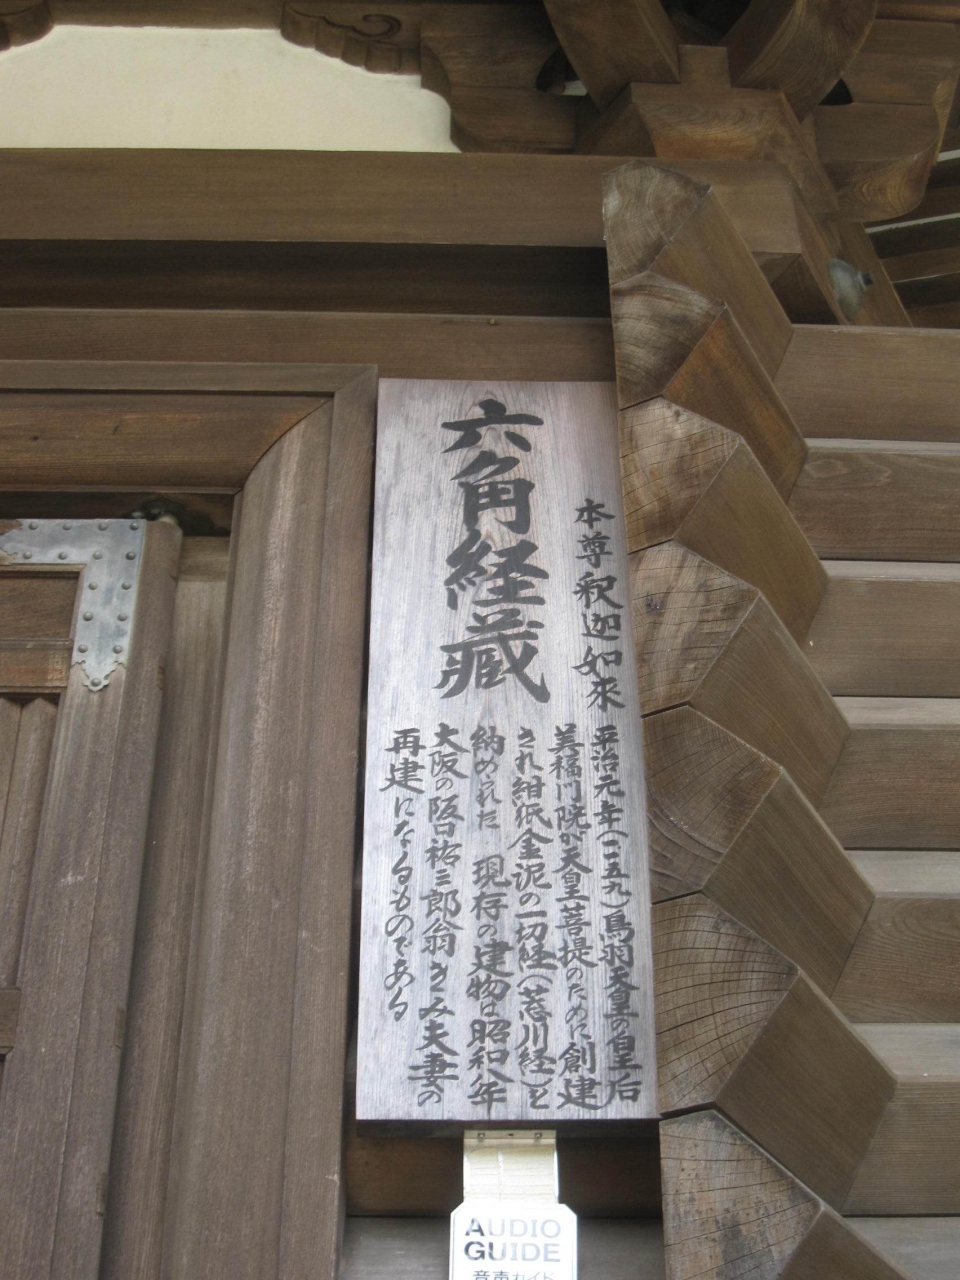 六角経蔵
本尊 釈迦如来
平治元年(一一五九)鳥羽天皇の皇后
美福門院が天皇菩提のために創建
され紺紙金泥の一切経(荒川経)を
納められた 現存の建物は昭和八年
大阪の阪口祐三郎翁きみ夫妻の
再建になるものである
AUDIO
GUIDE
音声ガイド